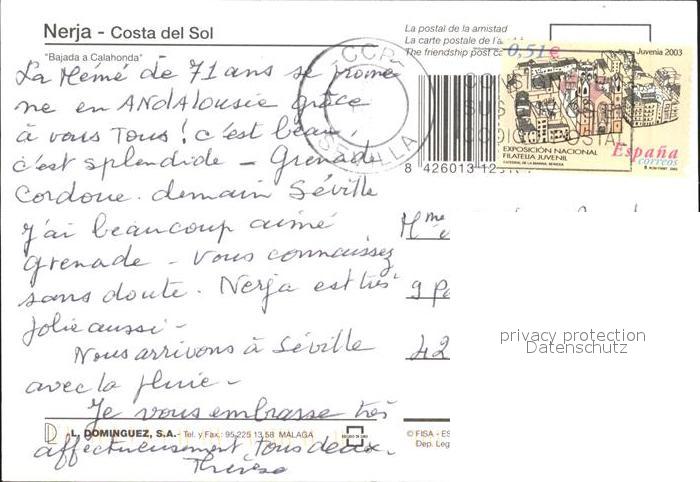 Nerja - Costa del Sol
"Bajada a Calahonda"
La postal de la amistad
La carte postale de l'a
The friendship post ca
0,51 €
Juvenia 2003
EXPOSICIÓN NACIONAL
FILATELIA JUVENIL
España
correos
CCP
SEVILLA
CODIGO POSTAL
8 426013 12
La Mémé de 71 ans se promè
ne en ANDAlousie grâce
à vous Tous ! c'est beau,
c'est splendide - Grenade
Cordoue. demain Séville
J'ai beaucoup aimé
grenade - vous connaissez
sans doute. Nerja est très
jolie aussi -
Nous arrivons à Séville
avec la pluie -
Je vous embrasse très
affectueusement, Tous deux.
Thérèse
Mme
9 Pa
42
privacy protection
Datenschutz
L. DOMINGUEZ, S.A. - Tel. y Fax.: 95 225 13 58 MALAGA
© FISA - ES
Dep. Leg